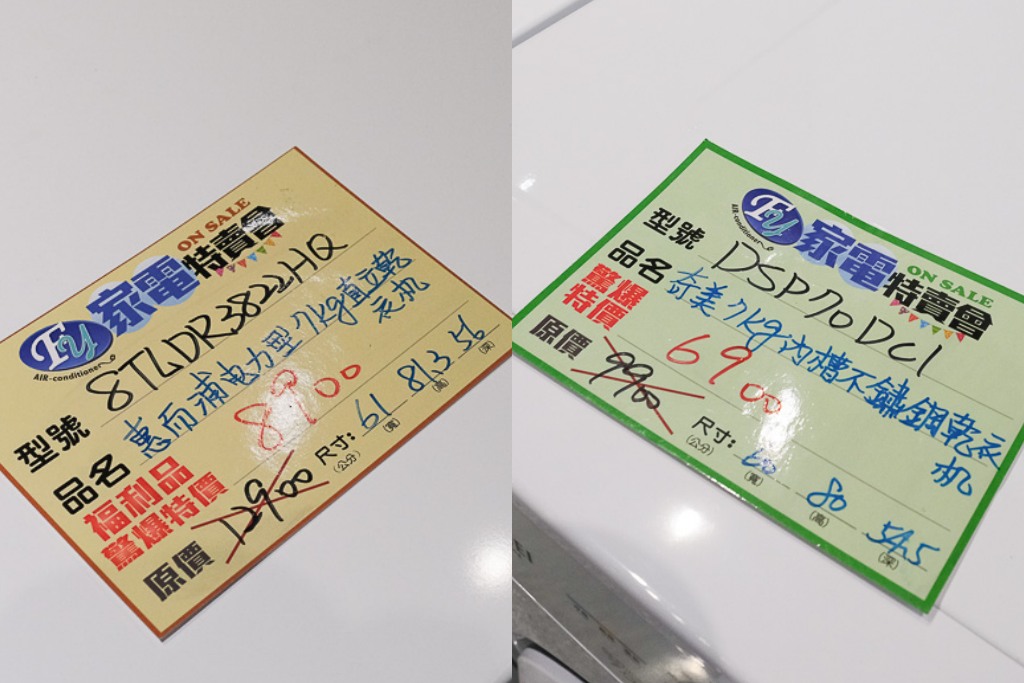 FY
AIR-conditioner
家電
ON SALE
特賣會
型號 8TLDR3822HQ
品名 惠而浦电力型7kg直立乾
衣机
福利品
驚爆特價 8900
原價 12900
尺寸: 61 81.3 56
(公分) (寬) (高) (深)
FY
AIR-conditioner
家電
ON SALE
特賣會
型號 DSP70DC1
品名 奇美7kg內槽不鏽鋼乾衣
机
驚爆
特價 6900
原價 9900
尺寸: 60 80 54.5
(公分) (寬) (高) (深)